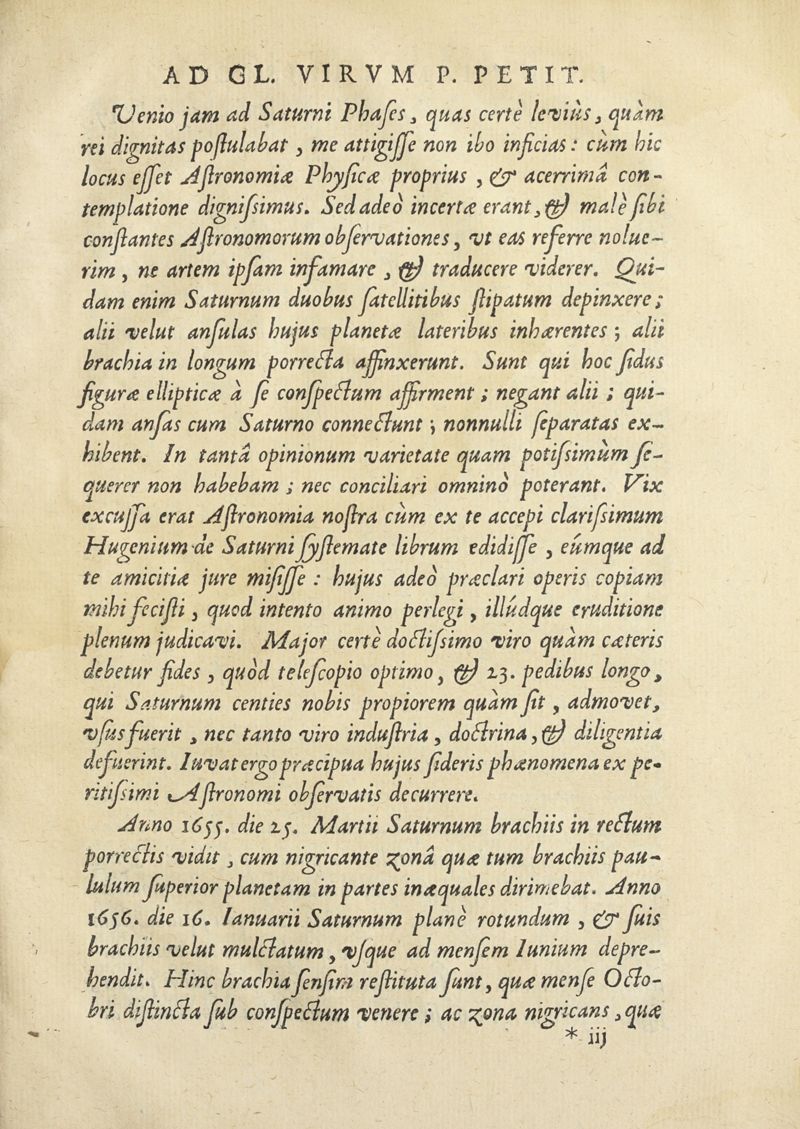 AD CL. VIRVM P. PETIT.
Venio jam ad Saturni Phaſes, quas certè leviùs, quàm
rei dignitas poſtulabat, me attigiſſe non ibo inficias: cùm hic
locus eſſet Aſtronomiæ Phyſicæ proprius, & acerrimâ con-
templatione digniſsimus. Sed adeò incertæ erant, & malè ſibi
conſtantes Aſtronomorum obſervationes, vt eas referre nolue-
rim, ne artem ipſam infamare, & traducere viderer. Qui-
dam enim Saturnum duobus ſatellitibus ſtipatum depinxere;
alii velut anſulas hujus planetæ lateribus inhærentes; alii
brachia in longum porrecta affinxerunt. Sunt qui hoc ſidus
figuræ ellipticæ à ſe conſpectum affirment; negant alii; qui-
dam anſas cum Saturno connectunt; nonnulli ſeparatas ex-
hibent. In tantâ opinionum varietate quam potiſsimùm ſe-
querer non habebam; nec conciliari omninò poterant. Vix
excuſſa erat Aſtronomia noſtra cùm ex te accepi clariſsimum
Hugenium de Saturni ſyſtemate librum edidiſſe, eúmque ad
te amicitiæ jure miſiſſe: hujus adeò præclari operis copiam
mihi feciſti, quod intento animo perlegi, illúdque eruditione
plenum judicavi. Major certè doctiſsimo viro quàm cæteris
debetur fides, quòd teleſcopio optimo, & 23. pedibus longo,
qui Saturnum centies nobis propiorem quàm ſit, admovet,
vſus fuerit, nec tanto viro induſtria, doctrina, & diligentia
defuerint. Iuvat ergo præcipua hujus ſideris phænomena ex pe-
ritiſsimi Aſtronomi obſervatis decurrere.
Anno 1655. die 25. Martii Saturnum brachiis in rectum
porrectis vidit, cum nigricante zonâ quæ tum brachiis pau-
lulum ſuperior planetam in partes inæquales dirimebat. Anno
1656. die 16. Ianuarii Saturnum planè rotundum, & ſuis
brachiis velut mulctatum, vſque ad menſem Iunium depre-
hendit. Hinc brachia ſenſim reſtituta ſunt, quæ menſe Octo-
bri diſtincta ſub conſpectum venere; ac zona nigricans, quæ
* iij